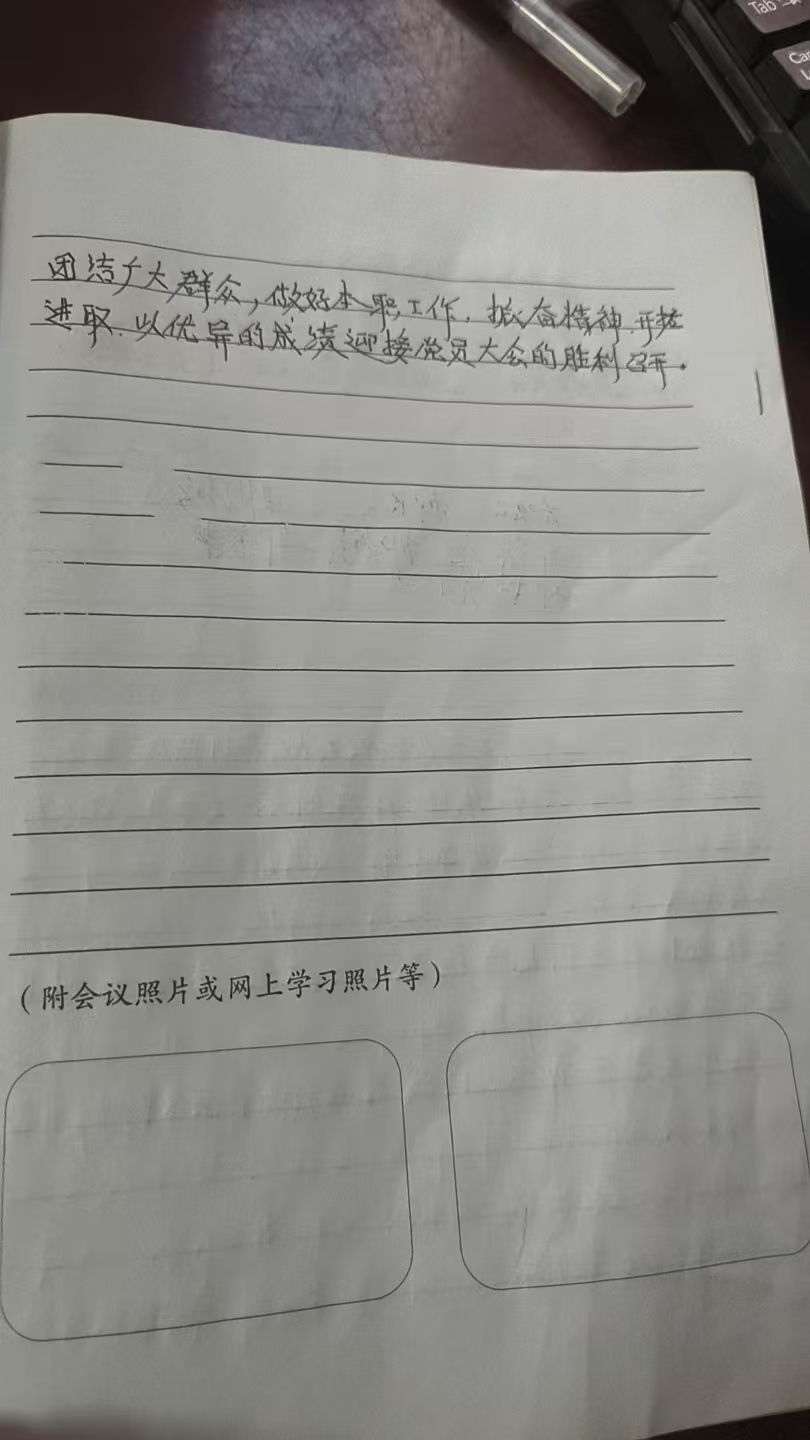 Tab
团结广大群众，做好本职工作，振奋精神、开拓
进取、以优异的成绩迎接党员大会的胜利召开。
（附会议照片或网上学习照片等）